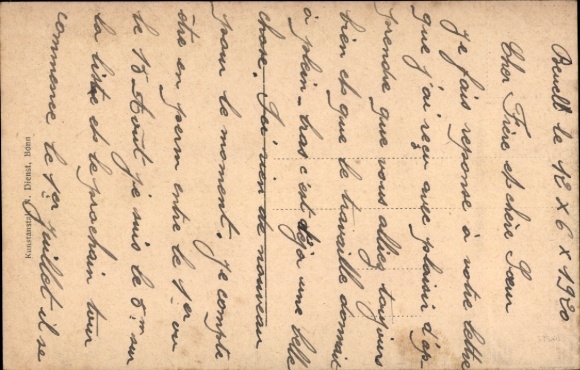 Beuel le 12 x 6 x 1920
Cher Frère et chère Sœur
je fais reponse à votre lettre
que j'ai reçu avec plaisir d'ap-
prendre que vous alliez toujours
bien et que le travaille donnait
à plein-bras c'est déja une belle
chose. Ici rien de nouveau
pour le moment. je compte
être en perm entre le 1er ou
le 15 Aout je suis le 8m sur
la liste et le prochain tour
commence le 1er juillet il se
Kunstanstalt Dienst, Bonn